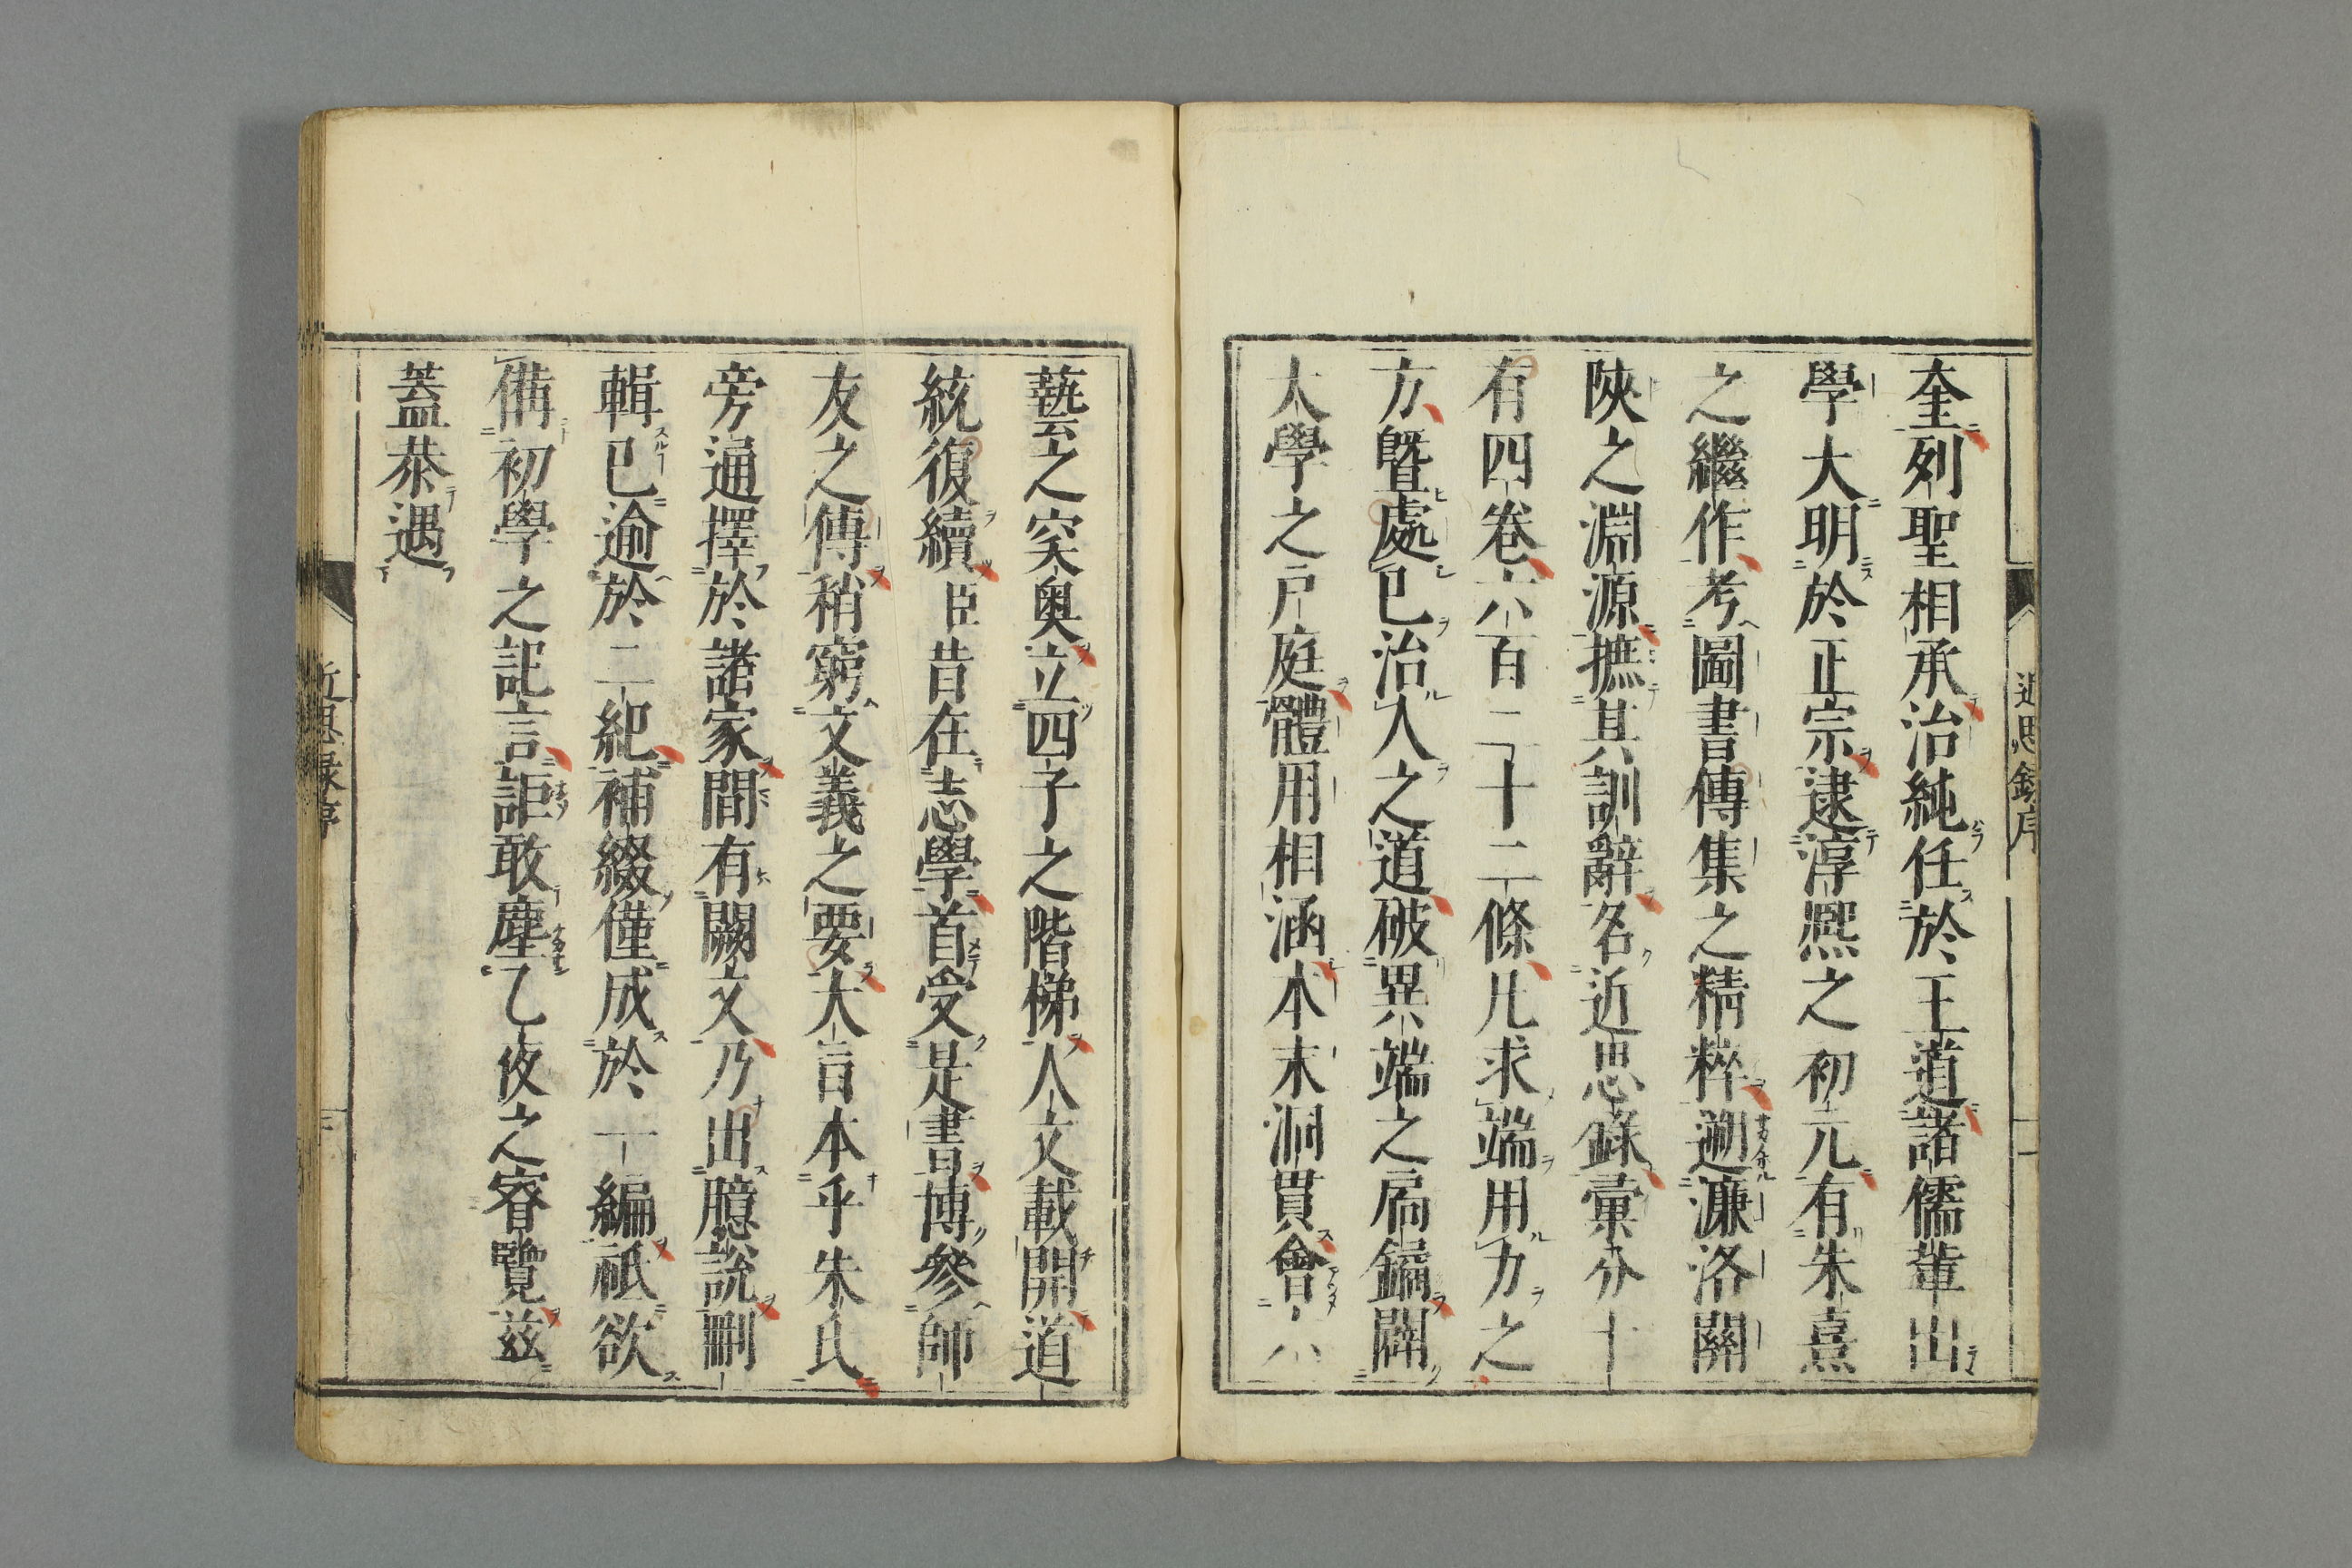 奎列聖相承治純任於王道諸儒輩出
學大明於正宗逮淳熙之初元有朱熹
之繼作考圖書傳集之精粹遡濂洛關
陝之淵源摭其訓辭名近思錄彙分十
有四卷六百二十二條凡求端用力之
方曁處已治人之道破異端之扃鐍闢
大學之戸庭體用相涵本末洞貫會六
藝之突奧立四子之階梯人文載開道
統復續臣昔在志學首受是書博參師
友之傳稍窮文義之要大旨本乎朱氏
旁通擇於諸家間有闕文乃出臆說刪
輯已逾於二紀補綴僅成於一編祇欲
備初學之記言詎敢塵乙夜之睿覽茲
蓋恭遇
近思錄序
近思錄序